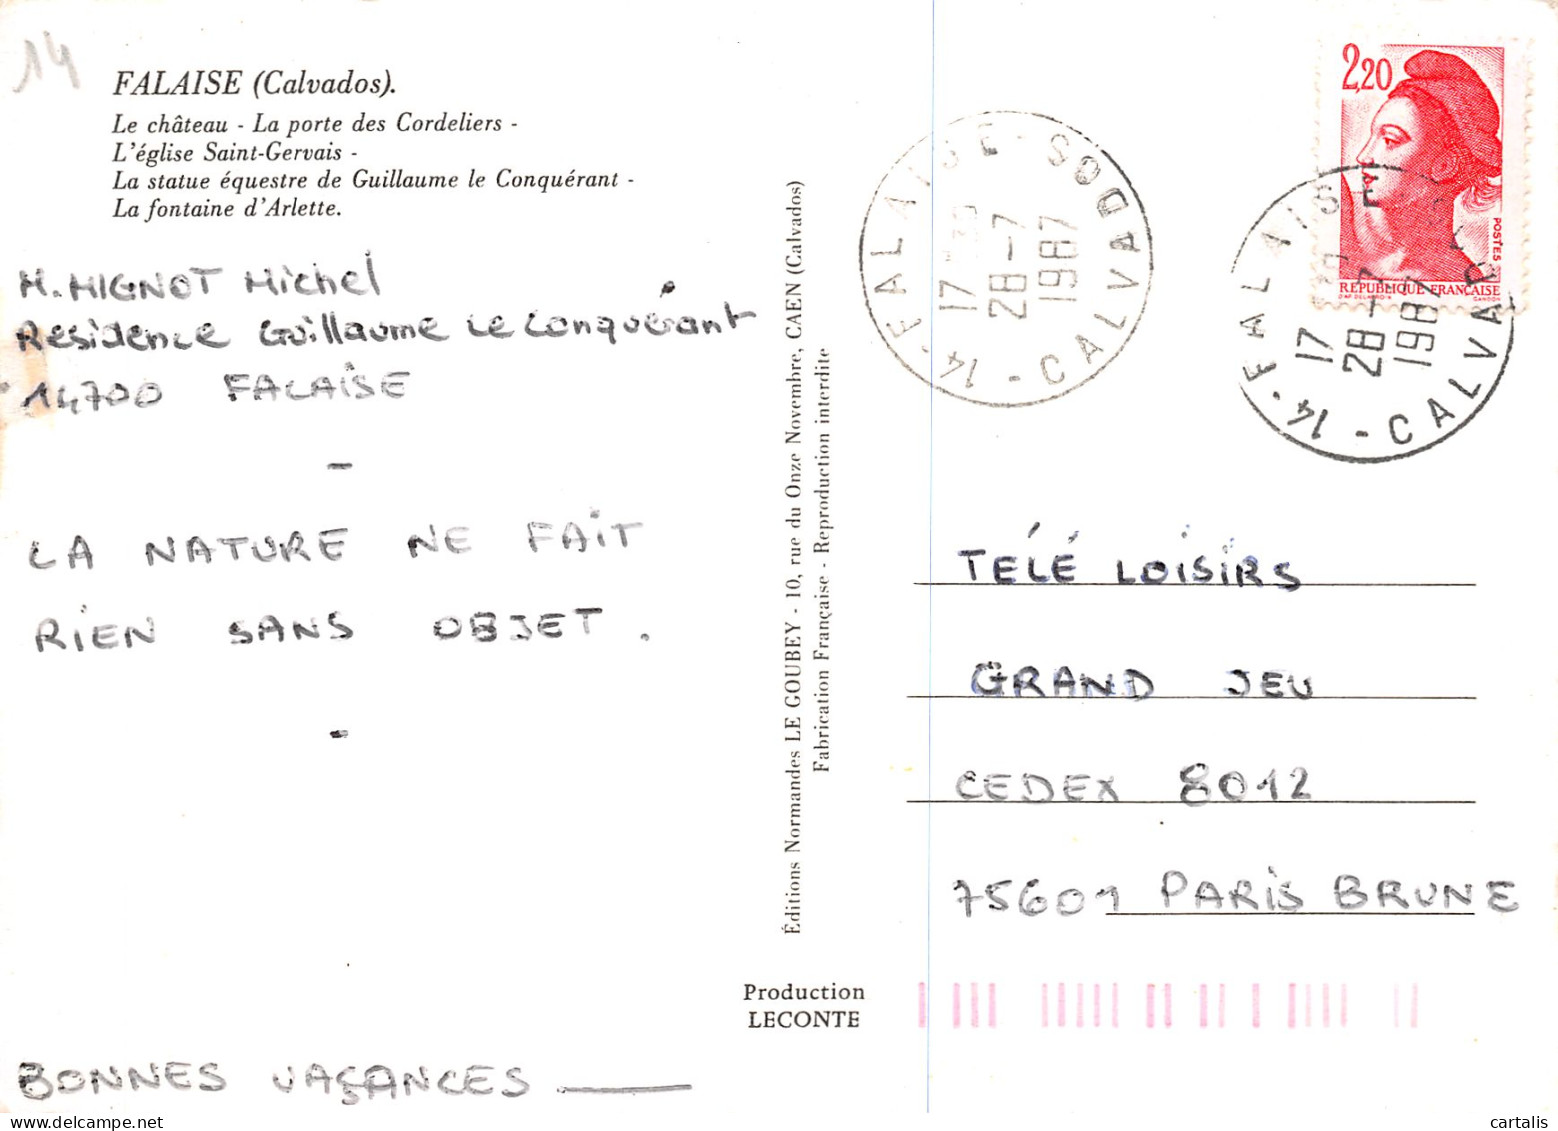 14
FALAISE (Calvados).
Le château - La porte des Cordeliers -
L'église Saint-Gervais -
La statue équestre de Guillaume le Conquérant -
La fontaine d'Arlette.
M. MIGNOT Michel
Résidence Guillaume Le Conquérant
14700 FALAISE
-
LA NATURE NE FAIT
RIEN SANS OBJET.
-
BONNES VAÇANCES
Éditions Normandes LE GOUBEY - 10, rue du Onze Novembre, CAEN (Calvados)
Fabrication Française - Reproduction interdite
Production
LECONTE
14 - FALAISE - CALVADOS
17
28-7
1987
2,20
POSTES
RÉPUBLIQUE FRANÇAISE
D'AP. DELACROIX GANDON
14 - FALAISE - CALVADOS
17
28-7
1987
TÉLÉ LOISIRS
GRAND JEU
CEDEX 8012
75601 PARIS BRUNE
cartalis